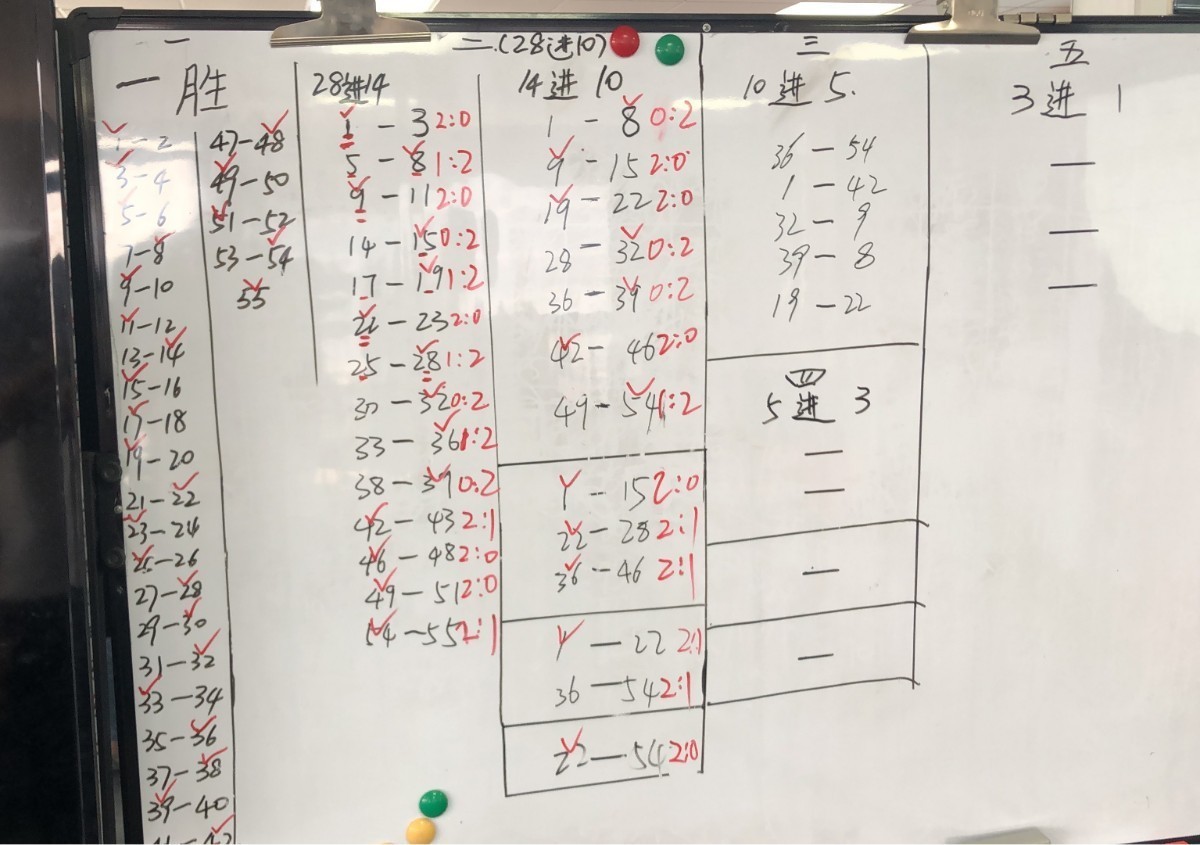 一
一胜
1-2
3-4
5-6
7-8
9-10
11-12
13-14
15-16
17-18
19-20
21-22
23-24
25-26
27-28
29-30
31-32
33-34
35-36
37-38
39-40
47-48
49-50
51-52
53-54
55
二.(28进10)
28进14
1-3 2:0
5-8 1:2
9-11 2:0
14-15 0:2
17-19 1:2
22-23 2:0
25-28 1:2
30-32 0:2
33-36 1:2
38-39 0:2
42-43 2:1
46-48 2:0
49-51 2:0
54-55 2:1
14进10
1-8 0:2
9-15 2:0
19-22 2:0
28-32 0:2
36-39 0:2
42-46 2:0
49-54 1:2
1-15 2:0
22-28 2:1
36-46 2:1
1-22 2:1
36-54 2:1
22-54 2:0
三
10进5.
36-54
1-42
32-9
39-8
19-22
四
5进3
—
—
—
—
五
3进1
—
—
—